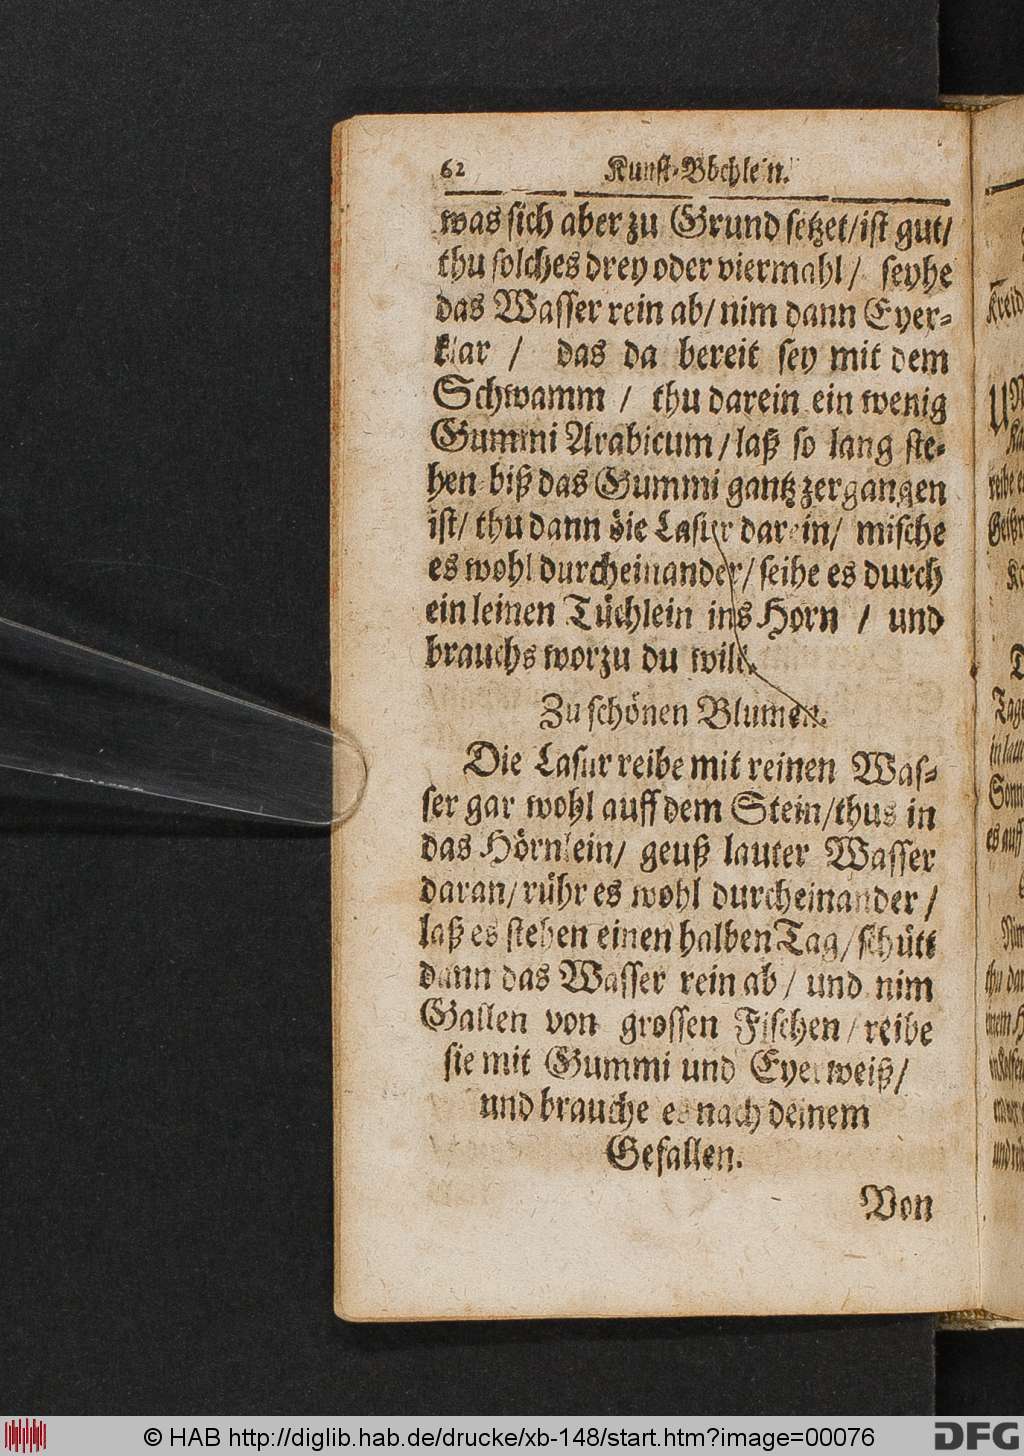 62 Kunst-Böchlein.
was sich aber zu Grund setzet/ist gut/
thu solches drey oder viermahl/ seyhe
das Wasser rein ab/nim dann Eyer-
klar / das da bereit sey mit dem
Schwamm / thu darein ein wenig
Gummi Arabicum/laß so lang ste-
hen biß das Gummi gantz zergangen
ist/ thu dann die Lasur darein/ mische
es wohl durcheinander/seihe es durch
ein leinen Tüchlein ins Horn / und
brauchs worzu du wilt.
Zu schönen Blumen.
Die Lasur reibe mit reinen Was-
ser gar wohl auff dem Stein/thus in
das Hörnlein/ geuß lauter Wasser
daran/rühr es wohl durcheinander/
laß es stehen einen halben Tag/schütt
dann das Wasser rein ab/ und nim
Gallen von grossen Fischen/reibe
sie mit Gummi und Eyerweiß/
und brauche es nach deinem
Gefallen.
Von
© HAB http://diglib.hab.de/drucke/xb-148/start.htm?image=00076
DFG